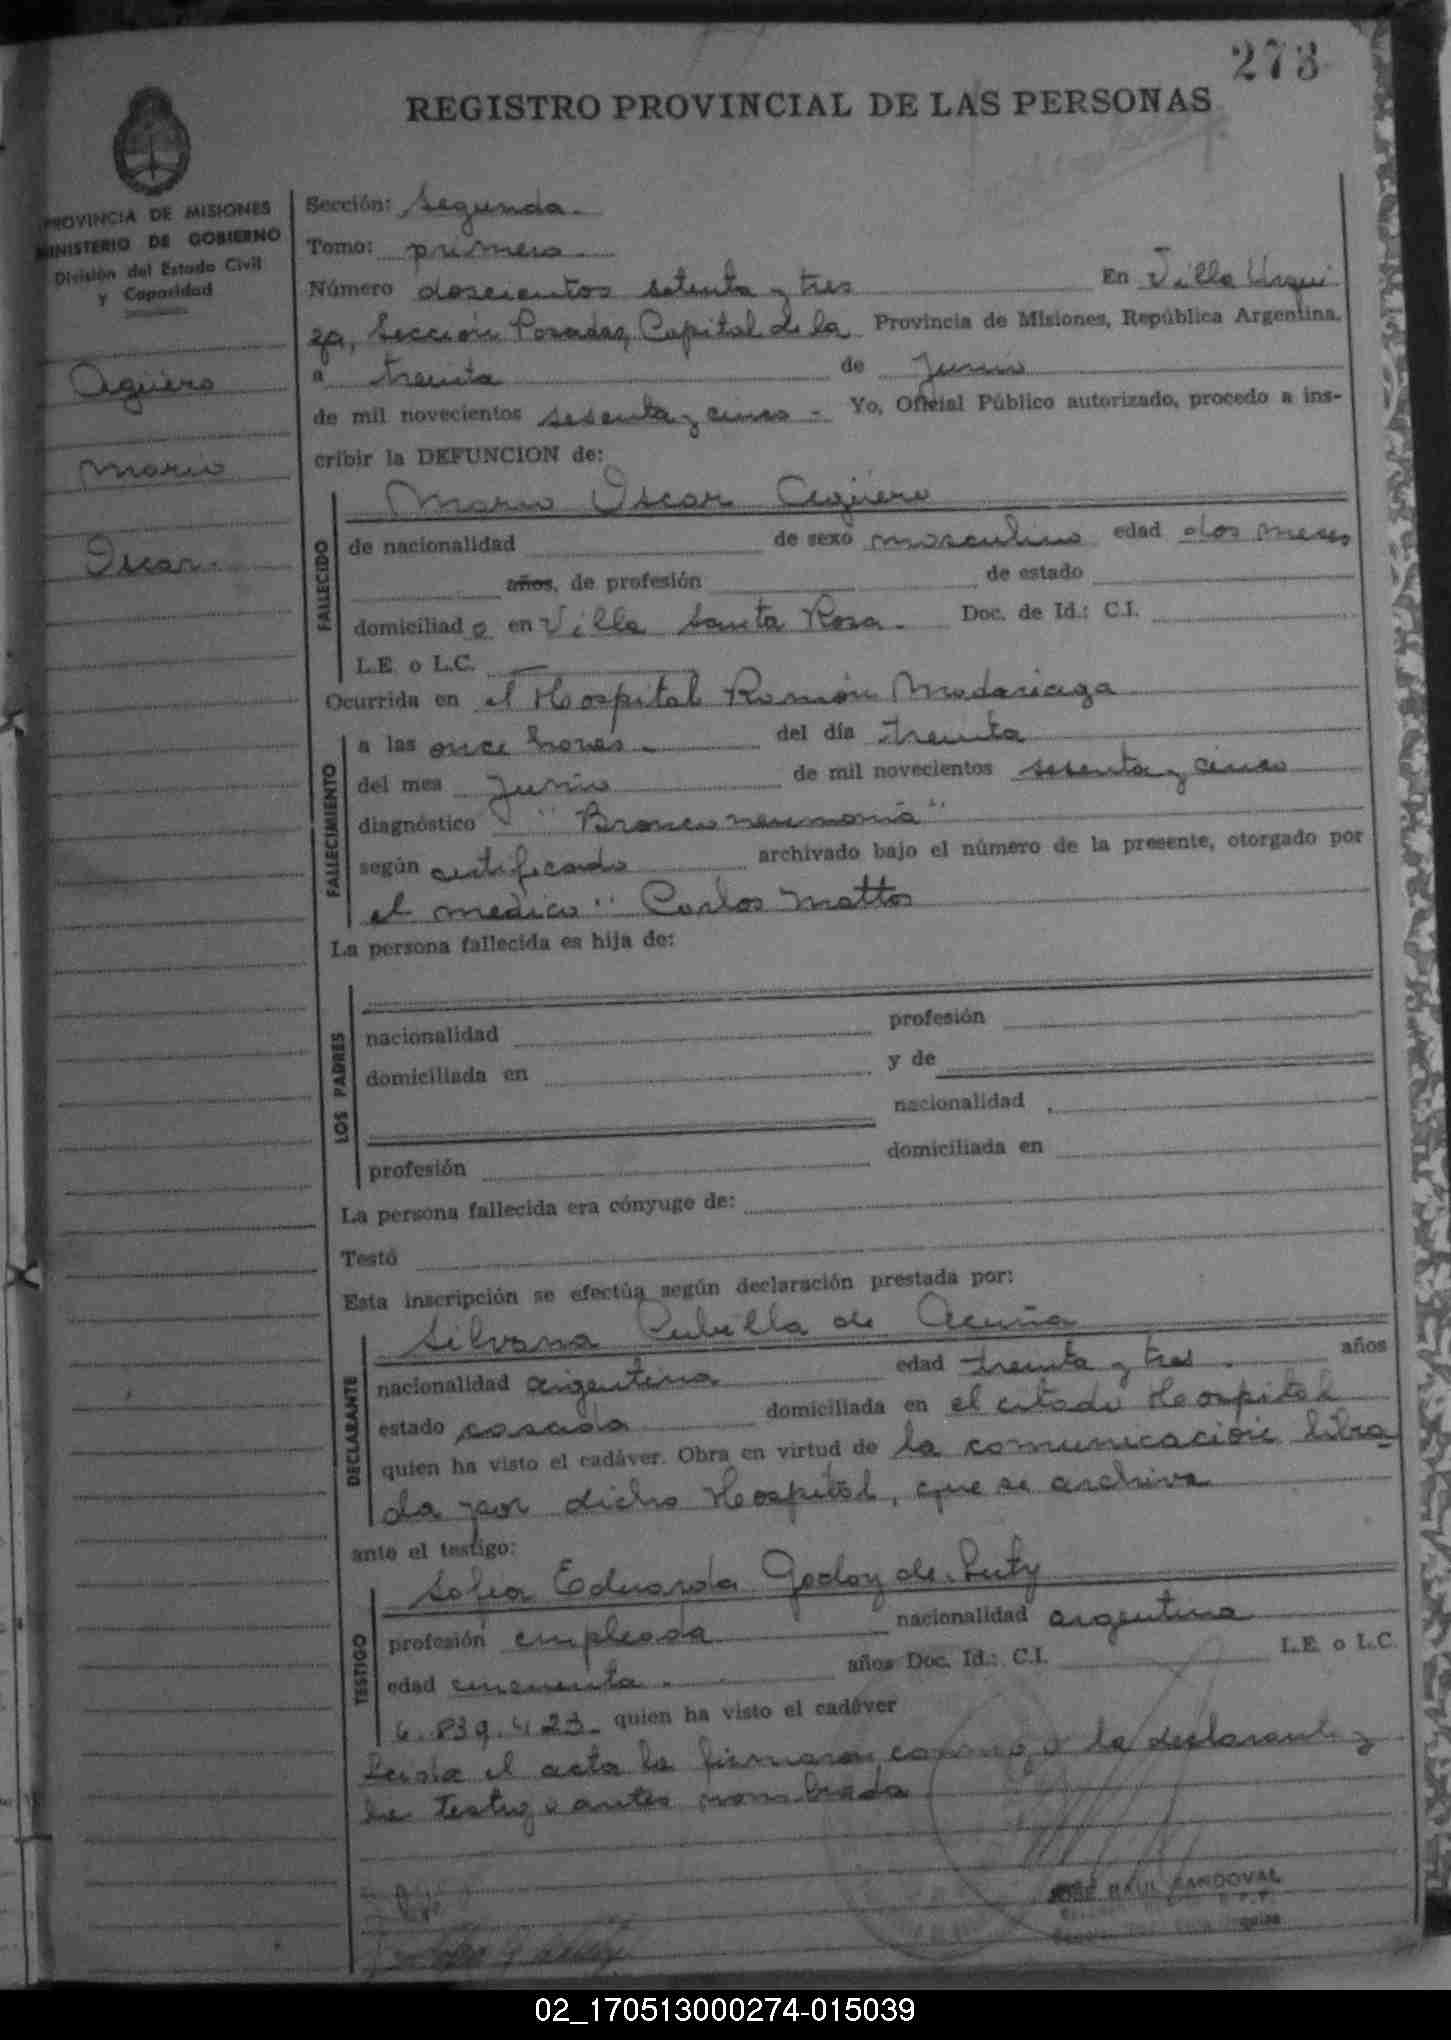 273
REGISTRO PROVINCIAL DE LAS PERSONAS
PROVINCIA DE MISIONES
MINISTERIO DE GOBIERNO
División del Estado Civil
y Capacidad
Agüero
Mario
Oscar.
Sección: Segunda.
Tomo: primero
Número doscientos setenta y tres En Villa Urqui
za, Sección Posadas, Capital de la Provincia de Misiones, República Argentina,
a treinta de Junio
de mil novecientos sesenta y cinco - Yo, Oficial Público autorizado, procedo a ins-
cribir la DEFUNCION de:
Mario Oscar Agüero
FALLECIDO
de nacionalidad de sexo masculino edad dos meses
años, de profesión de estado
domiciliado en Villa Santa Rosa. Doc. de Id.: C.I.
L.E. o L.C.
Ocurrida en el Hospital Ramón Madariaga
FALLECIMIENTO
a las once horas. del día treinta
del mes Junio de mil novecientos sesenta y cinco
diagnóstico "Bronconeumonía"
según certificado archivado bajo el número de la presente, otorgado por
el medico" Carlos Mattos
La persona fallecida es hija de:
LOS PADRES
nacionalidad profesión
domiciliada en y de
nacionalidad
profesión domiciliada en
La persona fallecida era cónyuge de:
Testó
Esta inscripción se efectúa según declaración prestada por:
Silvana Cubilla de Acuña
DECLARANTE
nacionalidad argentina edad treinta y tres. años
estado casada domiciliada en el citado Hospital
quien ha visto el cadáver. Obra en virtud de la comunicación libra
da por dicho Hospital, que se archiva
ante el testigo:
Sofia Eduarda Godoy de
TESTIGO
profesión empleada nacionalidad argentina
edad cincuenta. años Doc. Id.: C.I. L.E. o L.C.
6.839.423- quien ha visto el cadáver
Leida el acta la firmaron conmigo la declarante y
la testigo antes nombrada
JOSÉ RAUL SANDOVAL
02_170513000274-015039